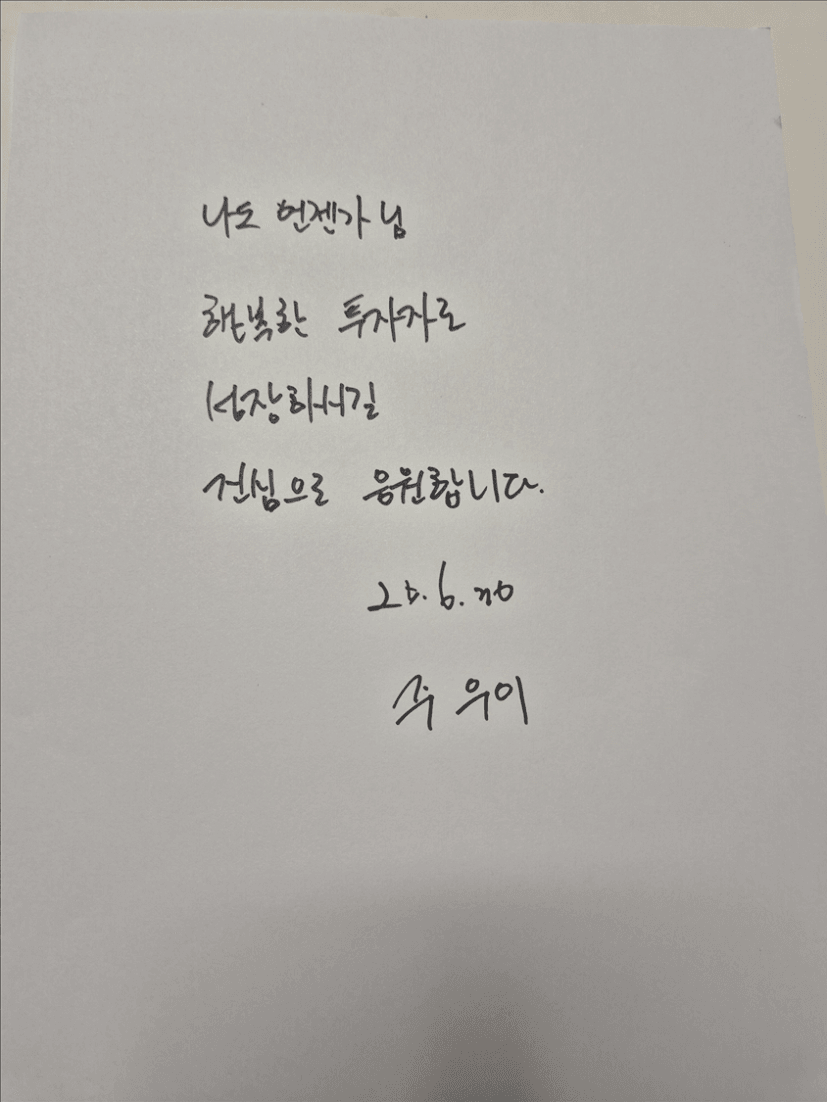 나도 언젠가 님
행복한 투자자로
성장하시길
진심으로 응원합니다.
25.6.20
우이